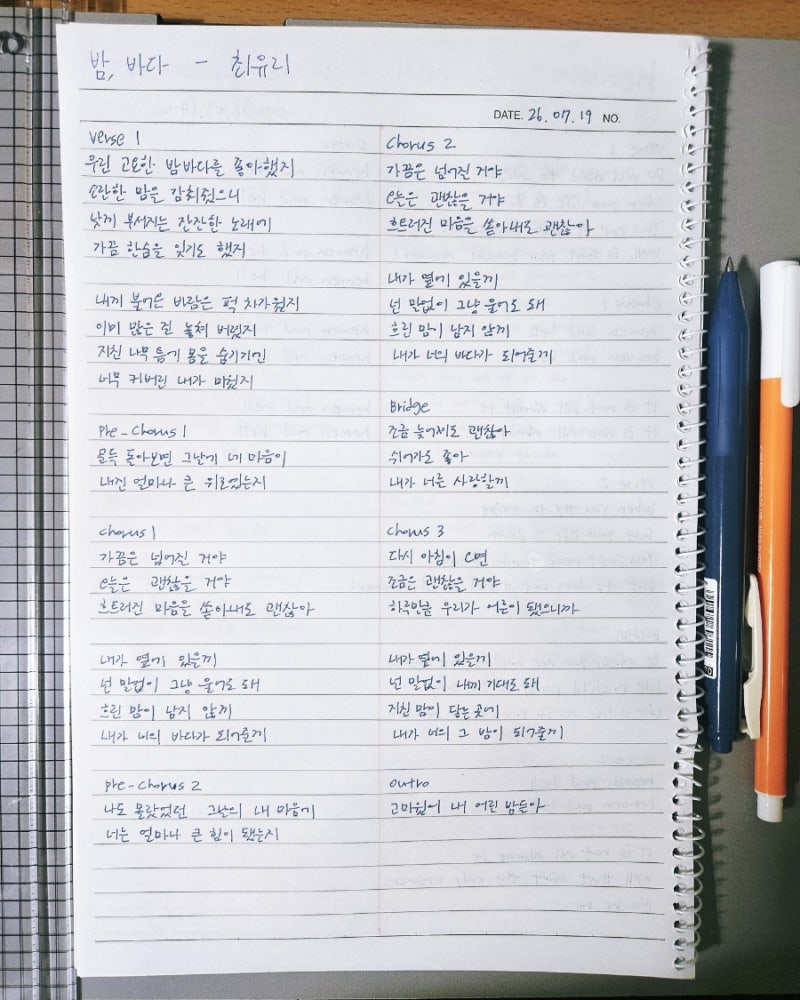 밤, 바다 - 최유리
DATE. 26. 07. 19 NO.
Verse 1
우린 고요한 밤바다를 좋아했지
소란한 맘을 감춰줬으니
낮게 부서지는 잔잔한 노래에
가끔 한숨을 잊기도 했지
내게 불어온 바람은 퍽 차가웠지
이미 많은 걸 놓쳐 버렸지
지친 나무 틈에 몸을 숨기기엔
너무 커버린 내가 미웠지
pre-chorus 1
문득 돌아보면 그날에 네 마음이
내겐 얼마나 큰 위로였는지
chorus 1
가끔은 넘어질 거야
오늘은 괜찮을 거야
흐트러진 마음을 쏟아내도 괜찮아
내가 옆에 있을게
넌 말없이 그냥 울어도 돼
흐린 맘이 남지 않게
내가 너의 바다가 되어줄게
pre-chorus 2
나도 몰랐었던 그날의 내 마음에
너는 얼마나 큰 힘이 됐는지
chorus 2
가끔은 넘어질 거야
오늘은 괜찮을 거야
흐트러진 마음을 쏟아내도 괜찮아
내가 옆에 있을게
넌 말없이 그냥 울어도 돼
흐린 맘이 남지 않게
내가 너의 바다가 되어줄게
Bridge
조금 늦어져도 괜찮아
쉬어가도 좋아
내가 너를 사랑할게
chorus 3
다시 아침이 오면
조금은 괜찮을 거야
하루만큼 우리가 어른이 됐으니까
내가 옆에 있을게
넌 말없이 내게 기대도 돼
지친 맘이 닿는 곳에
내가 너의 그 밤이 되어줄게
outro
고마웠어 내 어린 밤들아